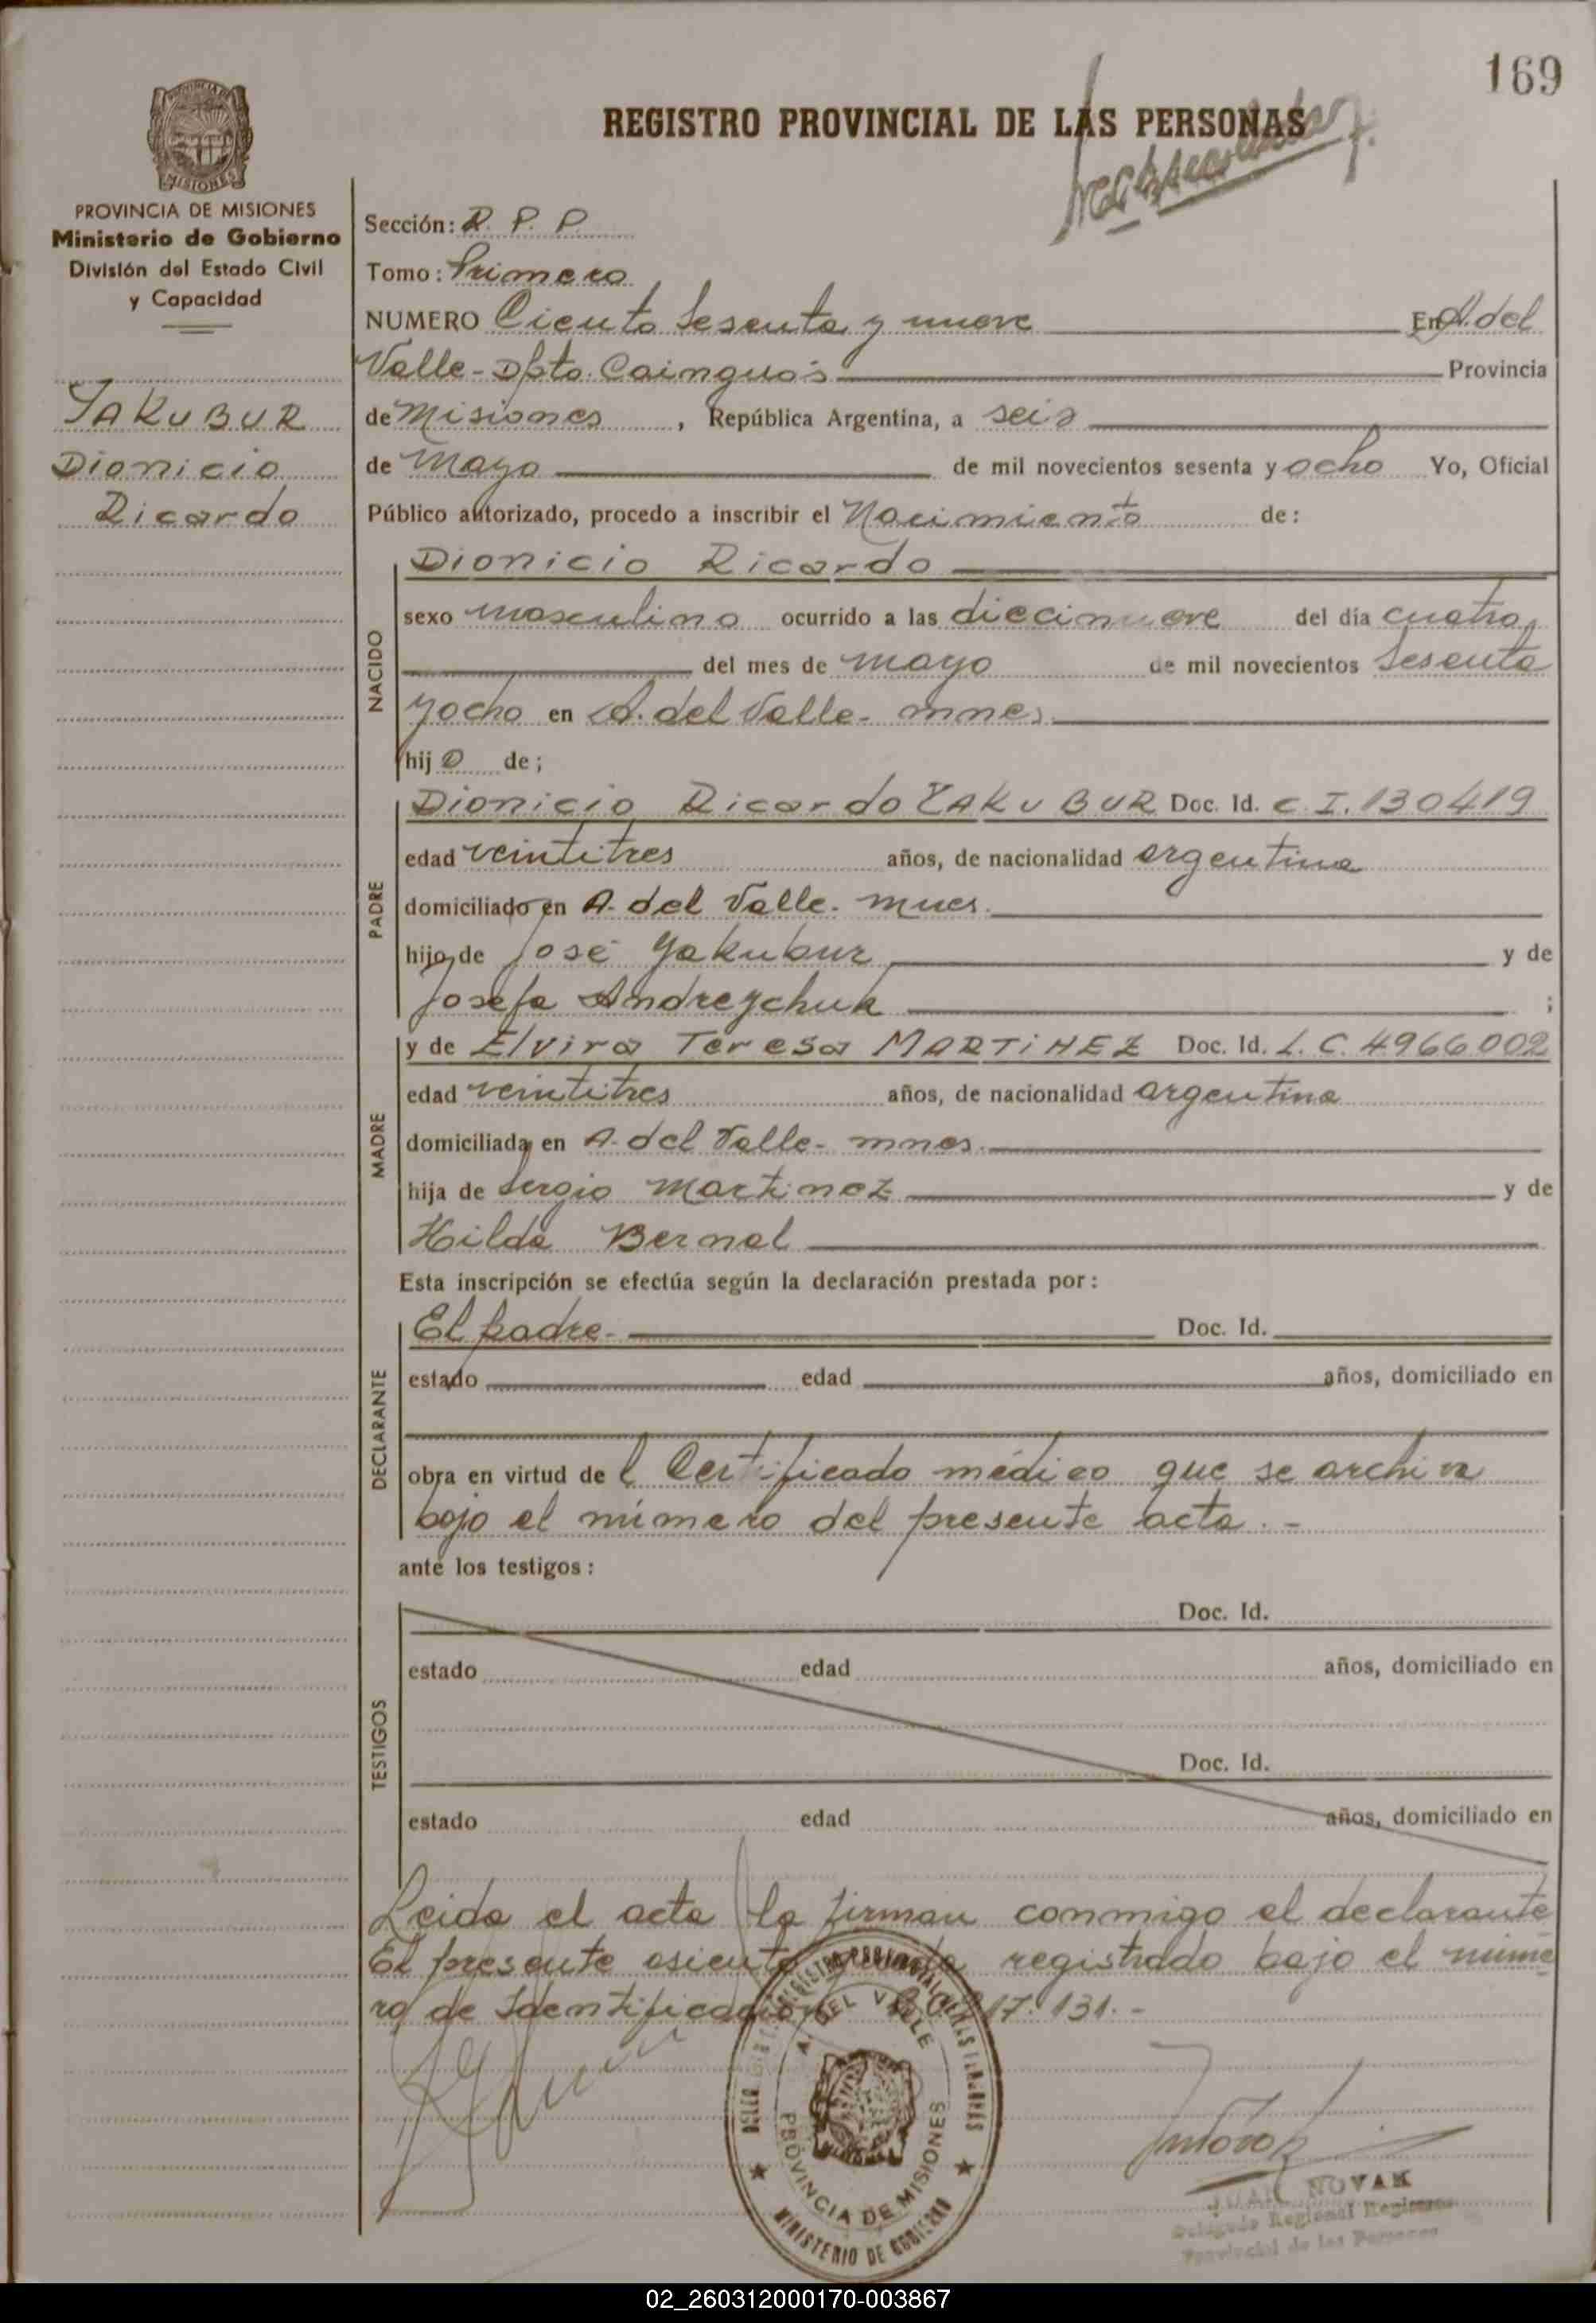 169
REGISTRO PROVINCIAL DE LAS PERSONAS
PROVINCIA DE MISIONES
Ministerio de Gobierno
División del Estado Civil
y Capacidad
YAKUBUR
Dionicio
Ricardo
Sección: R. P. P.
Tomo: Primero
NUMERO Ciento Sesenta y nueve En A. del
Valle - Dpto. Cainguás Provincia
de Misiones, República Argentina, a seis
de Mayo de mil novecientos sesenta y ocho Yo, Oficial
Público autorizado, procedo a inscribir el Nacimiento de:
NACIDO
Dionicio Ricardo
sexo masculino ocurrido a las diecinueve del día cuatro
del mes de mayo de mil novecientos Sesenta
y ocho en A. del Valle - mnes.
hijo de;
PADRE
Dionicio Ricardo YAKUBUR Doc. Id. C.I. 130419
edad veintitres años, de nacionalidad argentina
domiciliado en A. del Valle - mnes.
hijo de José Yakubur y de
Josefa Andreychuk ;
MADRE
y de Elvira Teresa MARTINEZ Doc. Id. L.C. 4966002
edad veintitres años, de nacionalidad argentina
domiciliada en A. del Valle - mnes.
hija de Sergio Martinez y de
Hilda Bernal
Esta inscripción se efectúa según la declaración prestada por:
DECLARANTE
El padre.- Doc. Id.
estado edad años, domiciliado en
obra en virtud del Certificado médico que se archiva
bajo el número del presente acta.-
ante los testigos:
TESTIGOS
Doc. Id.
estado edad años, domiciliado en
Doc. Id.
estado edad años, domiciliado en
Leida el acta la firman conmigo el declarante
El presente asiento registrado bajo el núme
ro de Identificación 17.131.-
A. DEL VALLE
PROVINCIA DE MISIONES
MINISTERIO DE GOBIERNO
JUAN NOVAK
Delegado Regional Registro
Provincial de las Personas
02_260312000170-003867